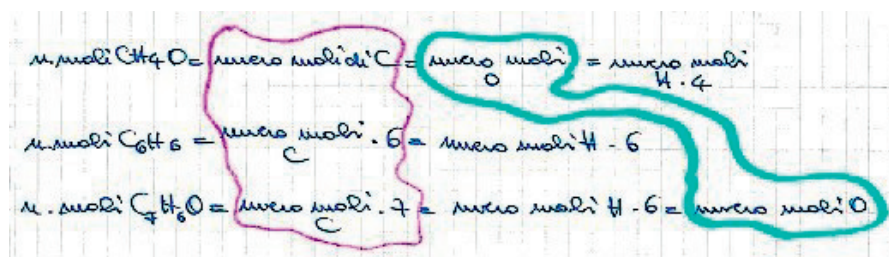 n. moli CH4O = numero moli di C = numero moli O = numero moli H . 4
n. moli C6H6 = numero moli C . 6 = numero moli H - 6
n. moli C7H6O = numero moli C . 7 = numero moli H - 6 = numero moli O